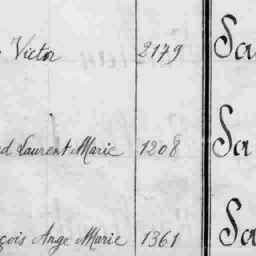 Victor 2179 Sa
d Laurent Marie 1208 Sa
çois Ange Marie 1361 Sa